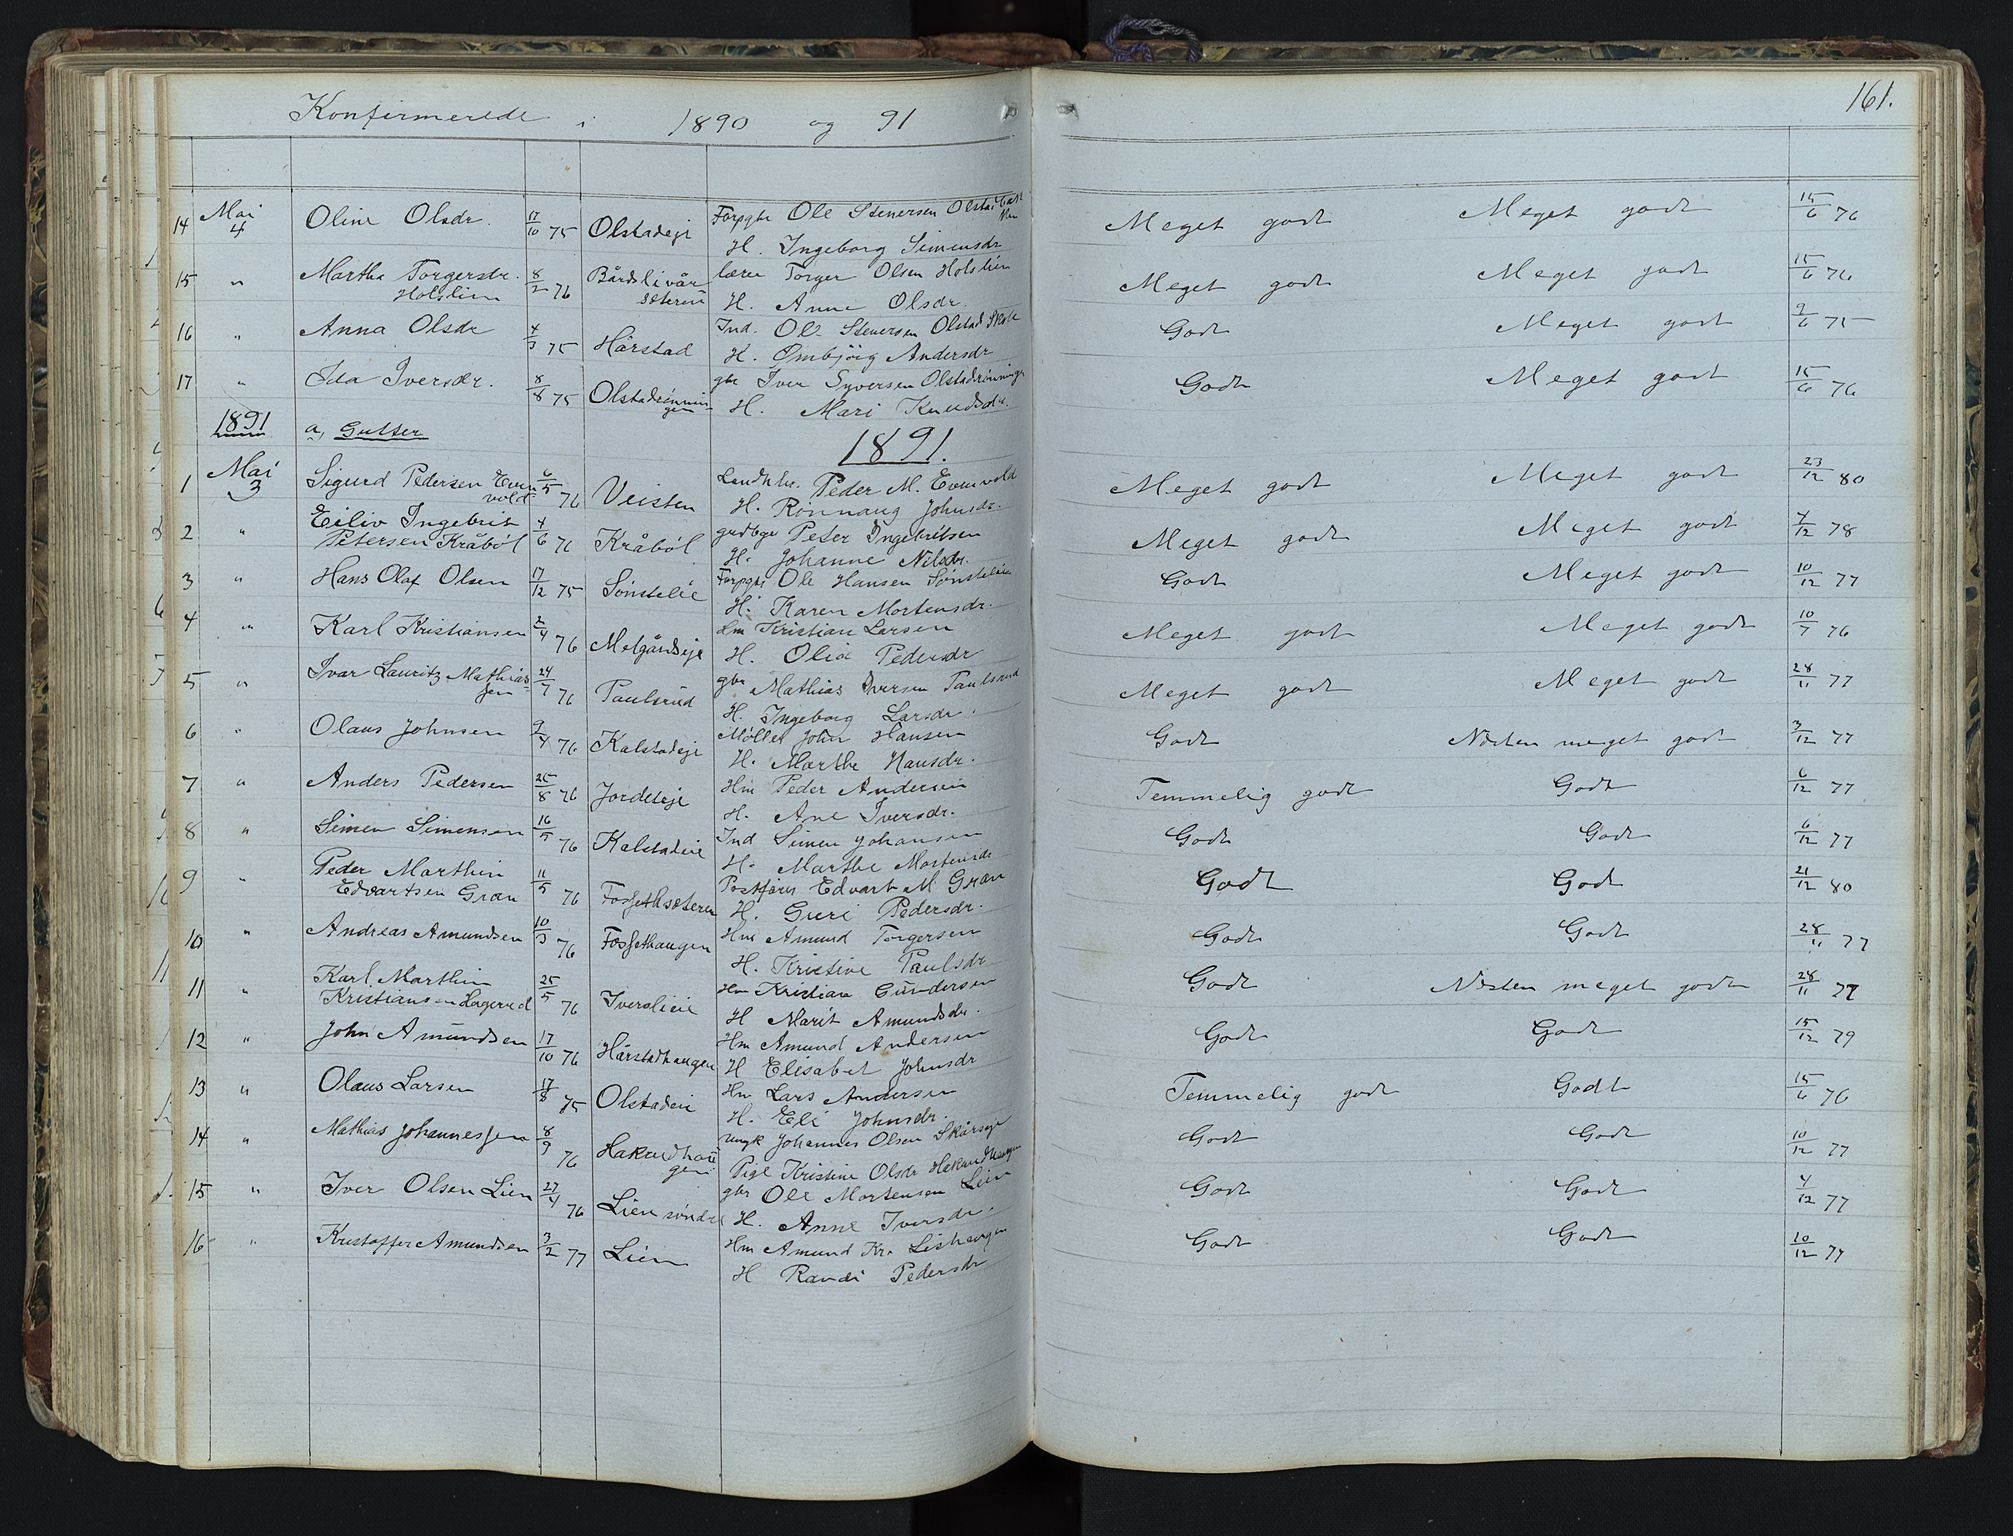 Konfirmerede i 1890 og 91
161.
14 Mai 4 Oline Olsdr. 17/10 75 Olstadeje Forpgtr Ole Stenersen Olstad
H. Ingeborg Simensdr Meget godt Meget godt 15/6 76
15 " Martha Torgersdr. Holslien 8/2 76 Bårdslivår sæteren lærer Torger Olsen Holslien
H. Anne Olsdr. Meget godt Meget godt 15/6 76
16 " Anna Olsdr 4/3 75 Hårstad Ind. Ole Stenersen Olstad
H. Ømbjörg Andersdr Godt Meget godt 9/6 75
17 " Ida Iversdr. 8/8 75 Olstadrønningen gbr Iver Syversen Olstadrønningen
H. Mari Knudsdr. Godt Meget godt 15/6 76
1891 a, Gutter 1891.
1 Mai 3 Sigurd Pedersen Evenvold 6/5 76 Veisten Landh. Peder M. Evenvold
H. Rønnaug Johnsdr. Meget godt Meget godt 23/12 80
2 " Eiliv Ingebrit Petersen Kråböl 4/6 76 Kråböl grdbgr Peter Ingebritsen
H. Johanne Nilsdr. Meget godt Meget godt 4/12 78
3 " Hans Olaf Olsen 17/12 75 Sønstelie Forpgtr Ole Hansen Sønstelie
H. Karen Mortensdr. Godt Meget godt 10/12 77
4 " Karl Kristiansen 2/4 76 Melgårdseje Hm Kristian Larsen
H. Olia Pedersdr Meget godt Meget godt 10/7 76
5 " Ivar Lauritz Mathiassen 24/7 76 Paulsrud gbr Mathias Iversen Paulsrud
H. Ingeborg Larsdr. Meget godt Meget godt 28/11 77
6 " Olaus Johnsen 9/4 76 Kalstadeje Møller John Hansen
H. Marthe Hansdr. Godt Næsten meget godt 3/12 77
7 " Anders Pedersen 25/8 76 Jordeteje Hm Peder Andersen
H. Ane Iversdr. Temmelig godt Godt 6/12 77
8 " Simen Simensen 16/5 76 Kalstadeie Ind Simen Johansen
H. Marthe Mortensdr Godt Godt 6/12 77
9 " Peder Marthin Edvartsen Gran 11/5 76 Fossethsæteren Postfører Edvart M. Gran
H. Guri Pedersdr. Godt Godt 21/12 80
10 " Andreas Amundsen 10/3 76 Fossethaugen Hm Amund Torgersen
H. Kristine Paulsdr Godt Godt 28/11 77
11 " Karl Marthin Kristiansen Hagerud 25/5 76 Iverslien Hm Kristian Gundersen
H Marit Amundsdr. Godt Næsten meget godt 28/11 77
12 " John Amundsen 17/10 76 Hårstadhaugen Hm Amund Andersen
H Elisabet Johnsdr Godt Godt 15/12 79
13 " Olaus Larsen 17/8 75 Olstadeie Hm Lars Andersen
H. Eli Johnsdr. Temmelig godt Godt 15/6 76
14 " Mathias Johannessen 8/9 76 Hakrudhaugen ungk Johannes Olsen Skårseje
Pige Kristine Olsdr Hakrudhaugen Godt Godt 10/12 77
15 " Iver Olsen Lien 27/4 76 Lien søndre gbr Ole Mortensen Lien
H. Anne Iversdr. Godt Godt 4/12 77
16 " Kristoffer Amundsen 3/2 77 Lien Hm Amund Kr. Lishaugen
H Randi Pedersdr Godt Godt 10/12 77